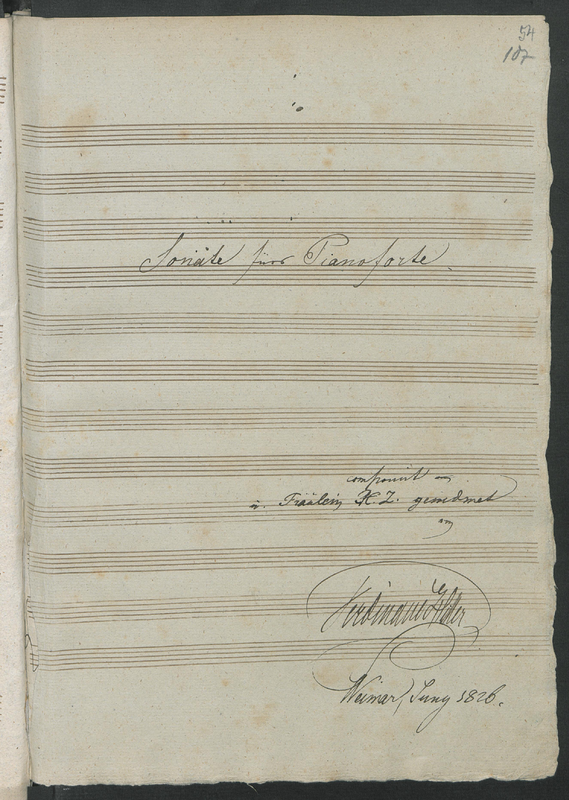 54
107
Sonate fürs Pianoforte.
componirt
u. Fräulein H. Z. gewidmet
Ferdinand Hiller
Weimar, Juny 1826.